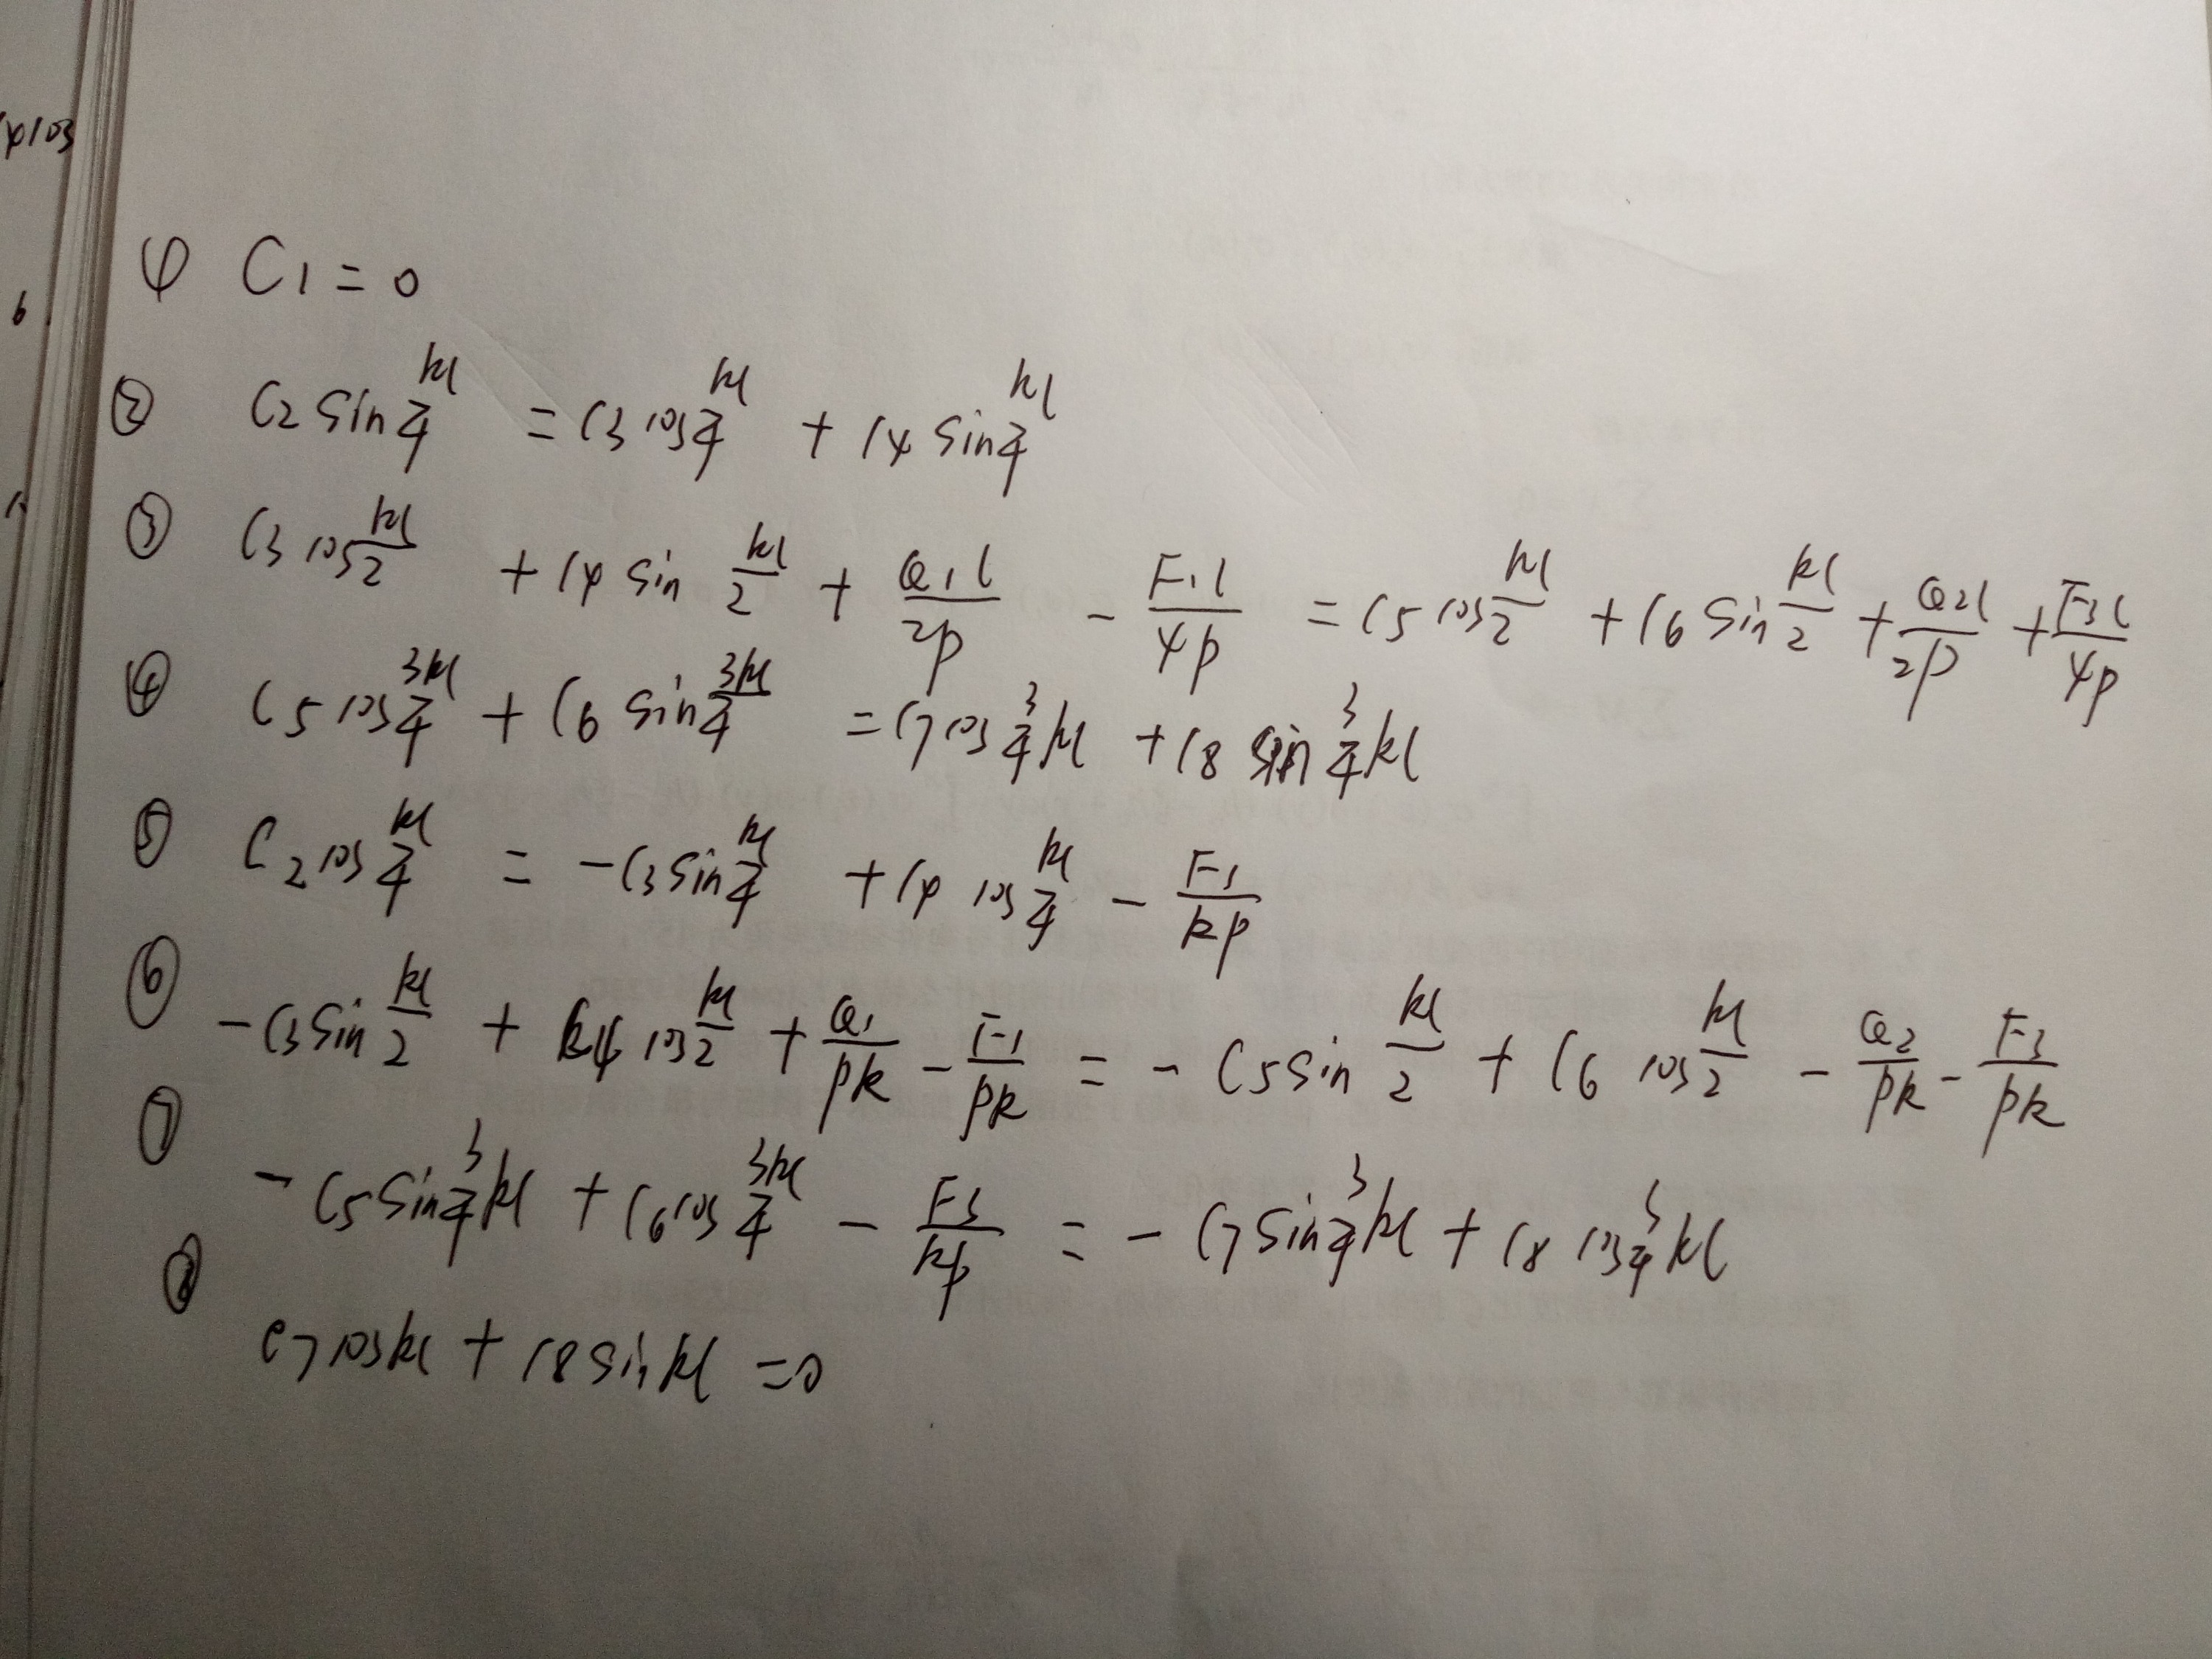 ① C1 = 0
② C2 sin kl/4 = C3 cos kl/4 + C4 sin kl/4
③ C3 cos kl/2 + C4 sin kl/2 + Q1l/2p - F1l/4p = C5 cos kl/2 + C6 sin kl/2 + Q2l/2p + F3l/4p
④ C5 cos 3kl/4 + C6 sin 3kl/4 = C7 cos 3/4 kl + C8 sin 3/4 kl
⑤ C2 cos kl/4 = -C3 sin kl/4 + C4 cos kl/4 - F1/kp
⑥ -C3 sin kl/2 + C4 cos kl/2 + Q1/pk - F1/pk = -C5 sin kl/2 + C6 cos kl/2 - Q2/pk - F3/pk
⑦ -C5 sin 3/4 kl + C6 cos 3kl/4 - F3/kp = -C7 sin 3/4 kl + C8 cos 3/4 kl
⑧ C7 cos kl + C8 sin kl = 0